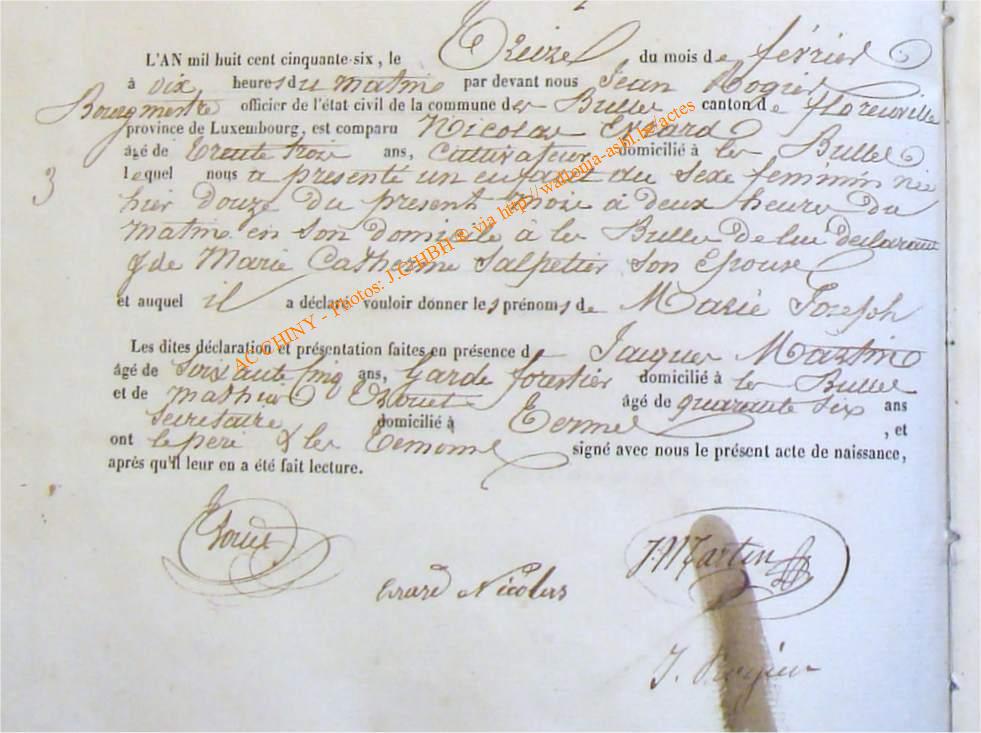 L'AN mil huit cent cinquante-six, le Treize du mois de février
à dix heures du matin par devant nous Jean Rogier
Bourgmestre officier de l'état civil de la commune des Bulles canton de florenville
province de Luxembourg, est comparu Nicolas Evrard
âgé de trente trois ans, Cultivateur domicilié à les Bulles
3 lequel nous a présenté un enfant du sexe feminin née
hier douze du present mois à deux heures du
matin en son domicile à les Bulles de lui declarant
& de Marie Catherine Salpetier son Epouse
et auquel il a déclaré vouloir donner les prénoms de Marie Joseph
Les dites déclaration et présentation faites en présence de Jacques Martin
âgé de Soixante cinq ans, Garde forestier domicilié à les Bulles
et de Mathieu âgé de quarante six ans
secretaire domicilié à Termes , et
ont le pere & les temoins signé avec nous le présent acte de naissance,
après qu'il leur en a été fait lecture.
J. Martin
Evrard Nicolas
J. Rogier
AC CHINY - Photos: J.C HBH © via http://wallonia-asbl.be/actes